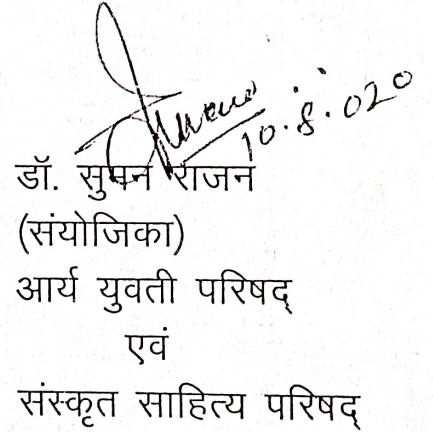 10.8.020
डॉ. सुमन राजन
(संयोजिका)
आर्य युवती परिषद्
एवं
संस्कृत साहित्य परिषद्